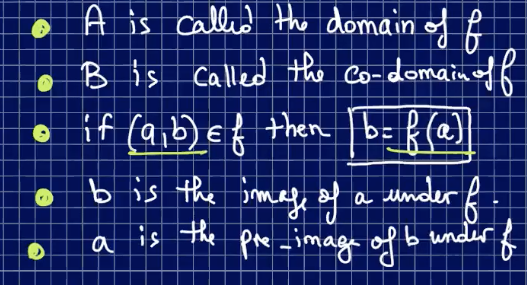 A is called the domain of f
B is called the co-domain of f
if (a,b) ∈ f then b = f(a)
b is the image of a under f.
a is the pre-image of b under f